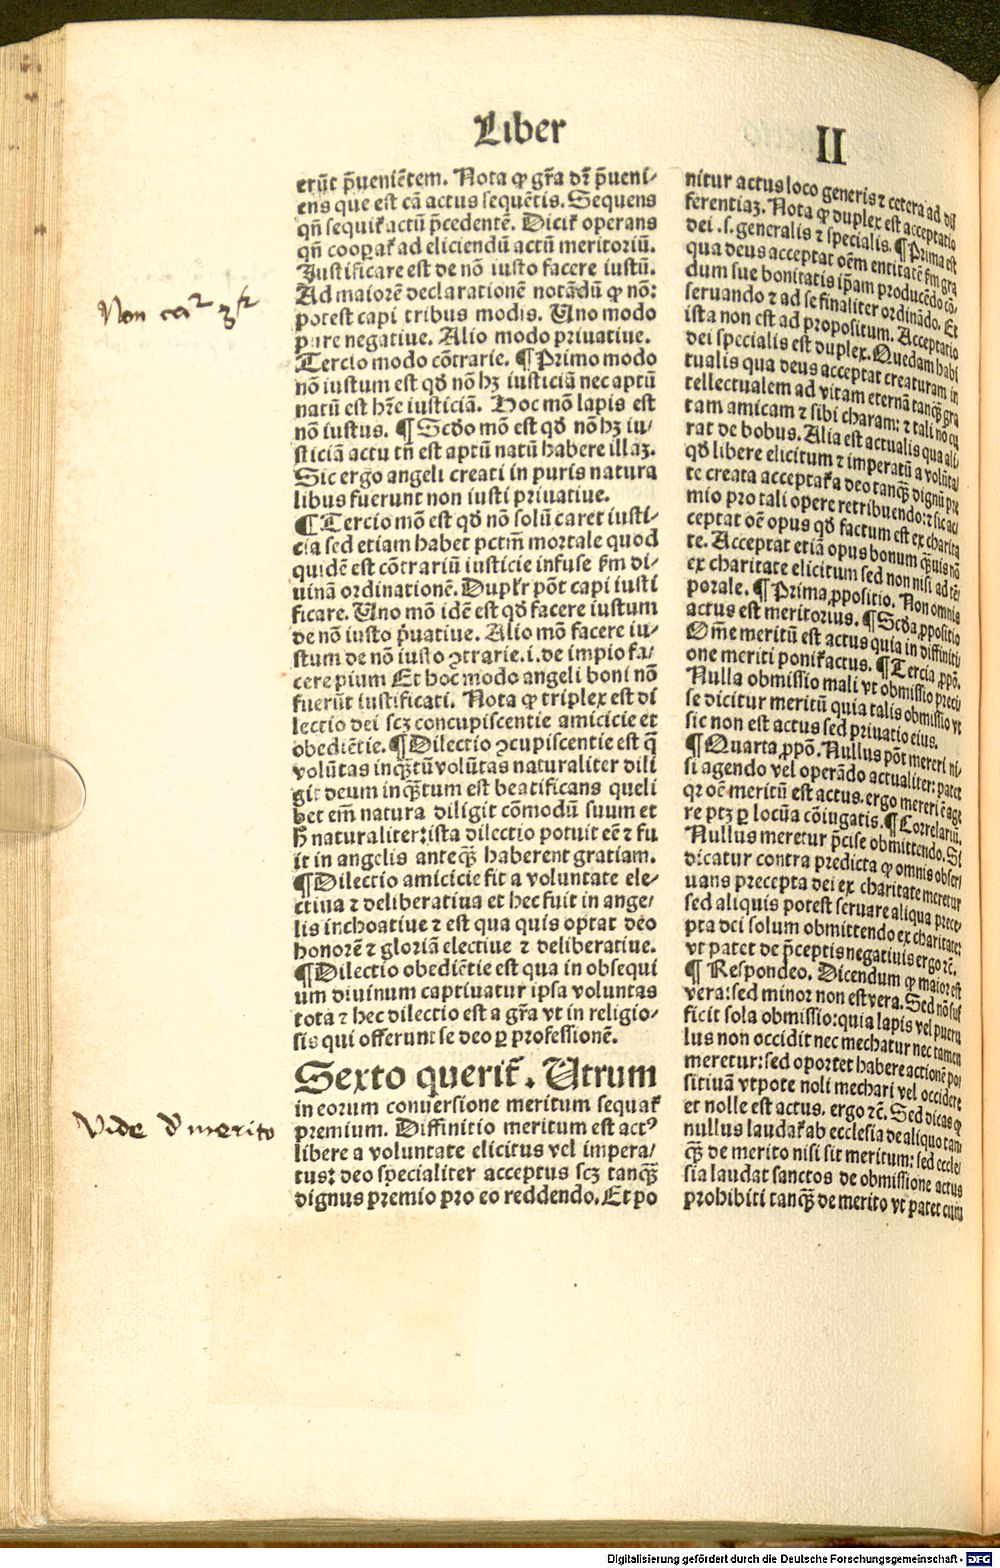 Liber
II
erūt p̄ueniētem. Nota ꝙ gr̄a dr̄ p̄ueni⸗
ens que est cā actus sequētis. Sequens
qn̄ sequiť actū p̄cedentē. Diciť operans
qn̄ cooꝑať ad eliciendū actū meritoriū.
Justificare est de nō iusto facere iustū.
Ad maiorē declarationē notādū ꝙ nō:
potest capi tribus modis. Uno modo
pure negatiue. Alio modo priuatiue.
Tercio modo cōtrarie. ¶ Primo modo
nō iustum est qď nō hꝫ iusticiā nec aptū
natū est hr̄e iusticiā. Hoc mō lapis est
nō iustus. ¶ Scďo mō est qď nō hꝫ iu⸗
sticiā actu tn̄ est aptū natū habere illaꝫ.
Sic ergo angeli creati in puris natura
libus fuerunt non iusti priuatiue.
¶ Tercio mō est qď nō solū caret iusti⸗
cia sed etiam habet pctm̄ mortale quod
quidē est cōtrariū iusticie infuse ẜm di⸗
uinā ordinationē. Duplr̄ pōt capi iusti
ficare. Uno mō idē est qď facere iustum
de nō iusto p̄uatiue. Alio mō facere iu⸗
stum de nō iusto ꝯtrarie. i. de impio fa⸗
cere pium Et hoc modo angeli boni nō
fuerūt iustificati. Nota ꝙ triplex est di
lectio dei scꝫ concupiscentie amicicie et
obediētie. ¶ Dilectio ꝯcupiscentie est q̄
volūtas inq̄ꝫtū volūtas naturaliter dili
git deum inq̄ꝫtum est beatificans queli
bet em̄ natura diligit cōmodū suum et
h̄ naturaliter: ista dilectio potuit eē ⁊ fu
it in angelis anteq̄ꝫ haberent gratiam.
¶ Dilectio amicicie fit a voluntate ele⸗
ctiua ⁊ deliberatiua et hec fuit in ange⸗
lis inchoatiue ⁊ est qua quis optat deo
honorē ⁊ gloriā electiue ⁊ deliberatiue.
¶ Dilectio obediētie est qua in obsequi
um diuinum captiuatur ipsa voluntas
tota ⁊ hec dilectio est a gr̄a vt in religio⸗
sis qui offerunt se deo ꝑ professionē.
Sexto querit̄. Utrum
in eorum conuersione meritum sequať
premium. Diffinitio meritum est actꝰ
libere a voluntate elicitus vel impera⸗
tus: deo specialiter acceptus scꝫ tanq̄ꝫ
dignus premio pro eo reddendo. Et po
nitur actus loco generis ⁊ cetera ad dif
ferentiaꝫ. Nota ꝙ duplex est acceptatio
dei .s. generalis ⁊ specialis. ¶ Prima est
qua deus acceptat oēm entitatē ẜm gra
dum sue bonitatis ip̄am producēdo cō⸗
seruando ⁊ ad se finaliter ordinādo. Et
ista non est ad propositum. Acceptatio
dei specialis est duplex. Quedam habi
tualis qua deus acceptat creaturam in
tellectualem ad vitam eternā tanq̄ꝫ gra
tam amicam ⁊ sibi charam: ⁊ tali nō cu
rat de bobus. Alia est actualis qua ali⸗
qď libere elicitum ⁊ imperatū a volūta⸗
te creata acceptať a deo tanq̄ꝫ dignū pre
mio pro tali opere retribuendo: ⁊ sic ac⸗
ceptat oē opus qď factum est ex charita
te. Acceptat etiā opus bonum q̄ꝫuis nō
ex charitate elicitum sed non nisi ad tē⸗
porale. ¶ Prima ꝓpositio. Non omnis
actus est meritorius. ¶ Scďa ꝓpositio
Om̄e meritū est actus quia in diffiniti
one meriti poniť actus. ¶ Tercia ꝓpō.
Nulla obmissio mali vt obmissio preci
se dicitur meritū quia talis obmissio vt
sic non est actus sed priuatio eius.
¶ Quarta ꝓpō. Nullus pōt mereri ni⸗
si agendo vel operādo actualiter: patet
qr oē meritū est actus. ergo mereri ē age
re ptꝫ ꝑ locū a cōiugatis. ¶ Correlariū.
Nullus meretur p̄cise obmittendo. Si
dicatur contra predicta ꝙ omnis obser⸗
uans precepta dei ex charitate meretur
sed aliquis potest seruare aliqua prece⸗
pta dei solum obmittendo ex charitate:
vt patet de p̄ceptis negatiuis ergo ⁊c̄.
¶ Respondeo. Dicendum ꝙ maior est
vera: sed minor non est vera. Sed nō suf
ficit sola obmissio: quia lapis vel pueru
lus non occidit nec mechatur nec tamen
meretur: sed oportet habere actionē po⸗
sitiuā vtpote noli mechari vel occidere
et nolle est actus. ergo ⁊c̄. Sed dicas ꝙ
nullus laudať ab ecclesia de aliquo tan
q̄ꝫ de merito nisi sit meritum: sed eccle⸗
sia laudat sanctos de obmissione actus
prohibiti tanq̄ꝫ de merito vt patet cum
Non
Vide d' merito
Digitalisierung gefördert durch die Deutsche Forschungsgemeinschaft - DFG